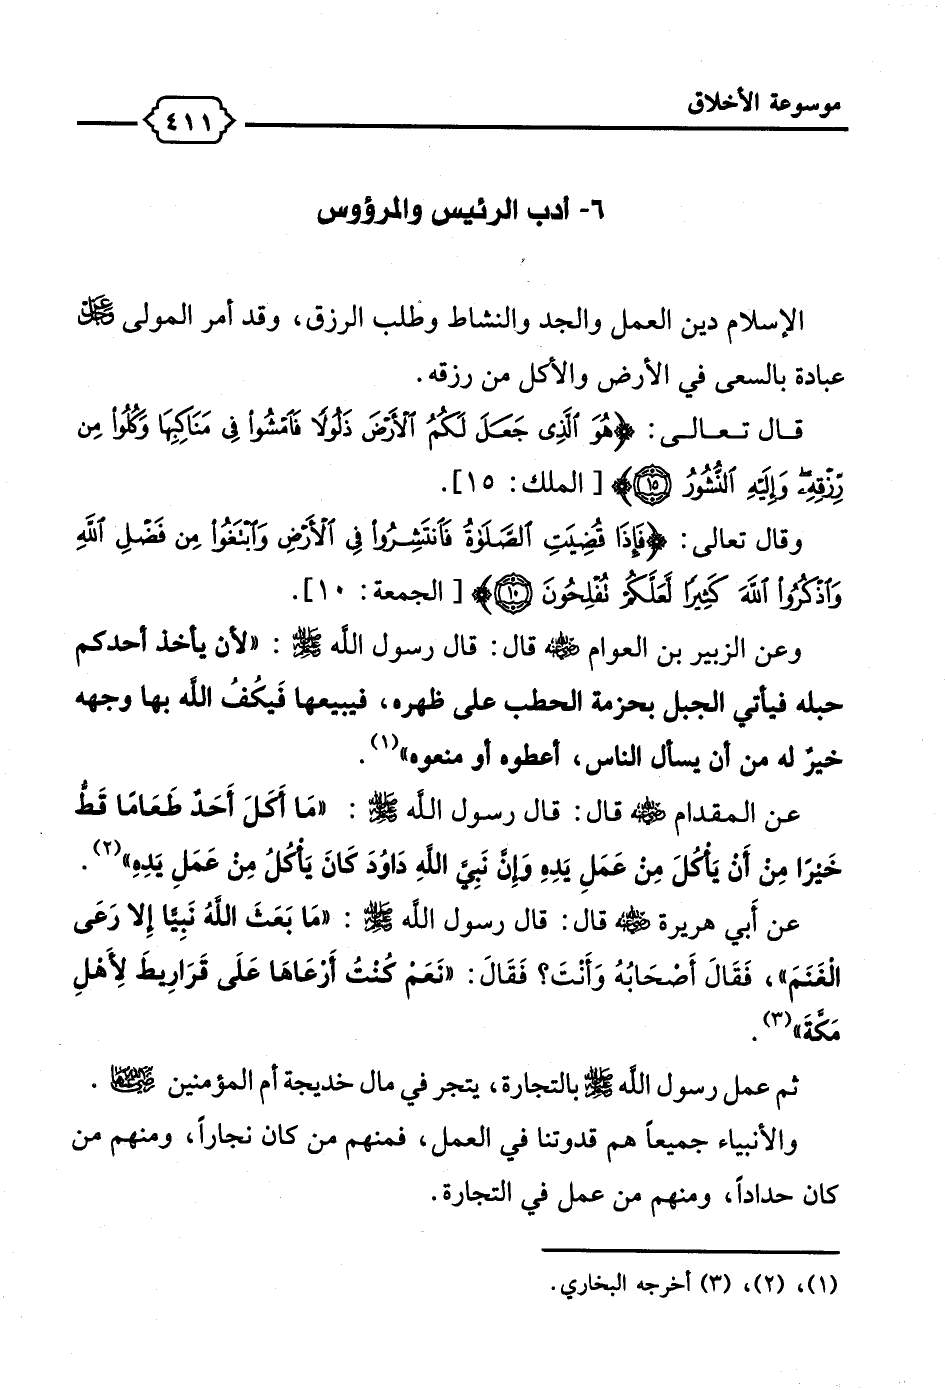 موسوعة الأخلاق
٤١١
٦- أدب الرئيس والمرؤوس
الإسلام دين العمل والجد والنشاط وطلب الرزق، وقد أمر المولى ﷻ
عبادة بالسعى في الأرض والأكل من رزقه.
قال تعالى: ﴿هُوَ ٱلَّذِى جَعَلَ لَكُمُ ٱلْأَرْضَ ذَلُولًا فَٱمْشُوا۟ فِى مَنَاكِبِهَا وَكُلُوا۟ مِن
رِّزْقِهِۦ ۖ وَإِلَيْهِ ٱلنُّشُورُ ١٥﴾ [الملك: ١٥].
وقال تعالى: ﴿فَإِذَا قُضِيَتِ ٱلصَّلَوٰةُ فَٱنتَشِرُوا۟ فِى ٱلْأَرْضِ وَٱبْتَغُوا۟ مِن فَضْلِ ٱللَّهِ
وَٱذْكُرُوا۟ ٱللَّهَ كَثِيرًا لَّعَلَّكُمْ تُفْلِحُونَ ١٠﴾ [الجمعة: ١٠].
وعن الزبير بن العوام رضي الله عنه قال: قال رسول اللَّه ﷺ : «لأن يأخذ أحدكم
حبله فيأتي الجبل بحزمة الحطب على ظهره، فيبيعها فَيكُفُ اللَّه بها وجهه
خيرٌ له من أن يسأل الناس، أعطوه أو منعوه»(١).
عن المقدام رضي الله عنه قال: قال رسول اللَّه ﷺ : «مَا أَكَلَ أَحَدٌ طَعَامًا قَطُّ
خَيْرًا مِنْ أَنْ يَأْكُلَ مِنْ عَمَلِ يَدِهِ وَإِنَّ نَبِيَّ اللَّهِ دَاوُدَ كَانَ يَأْكُلُ مِنْ عَمَلِ يَدِهِ»(٢).
عن أَبي هريرة رضي الله عنه قال: قال رسول اللَّه ﷺ : «مَا بَعَثَ اللَّهُ نَبِيًّا إِلا رَعَى
الْغَنَمَ»، فَقَالَ أَصْحَابُهُ وَأَنْتَ؟ فَقَالَ: «نَعَمْ كُنْتُ أَرْعَاهَا عَلَى قَرَارِيطَ لِأَهْلِ
مَكَّةَ»(٣).
ثم عمل رسول اللَّه ﷺ بالتجارة، يتجر في مال خديجة أم المؤمنين رضي الله عنها .
والأنبياء جميعاً هم قدوتنا في العمل، فمنهم من كان نجاراً، ومنهم من
كان حداداً، ومنهم من عمل في التجارة.
(١)، (٢)، (٣) أخرجه البخاري.